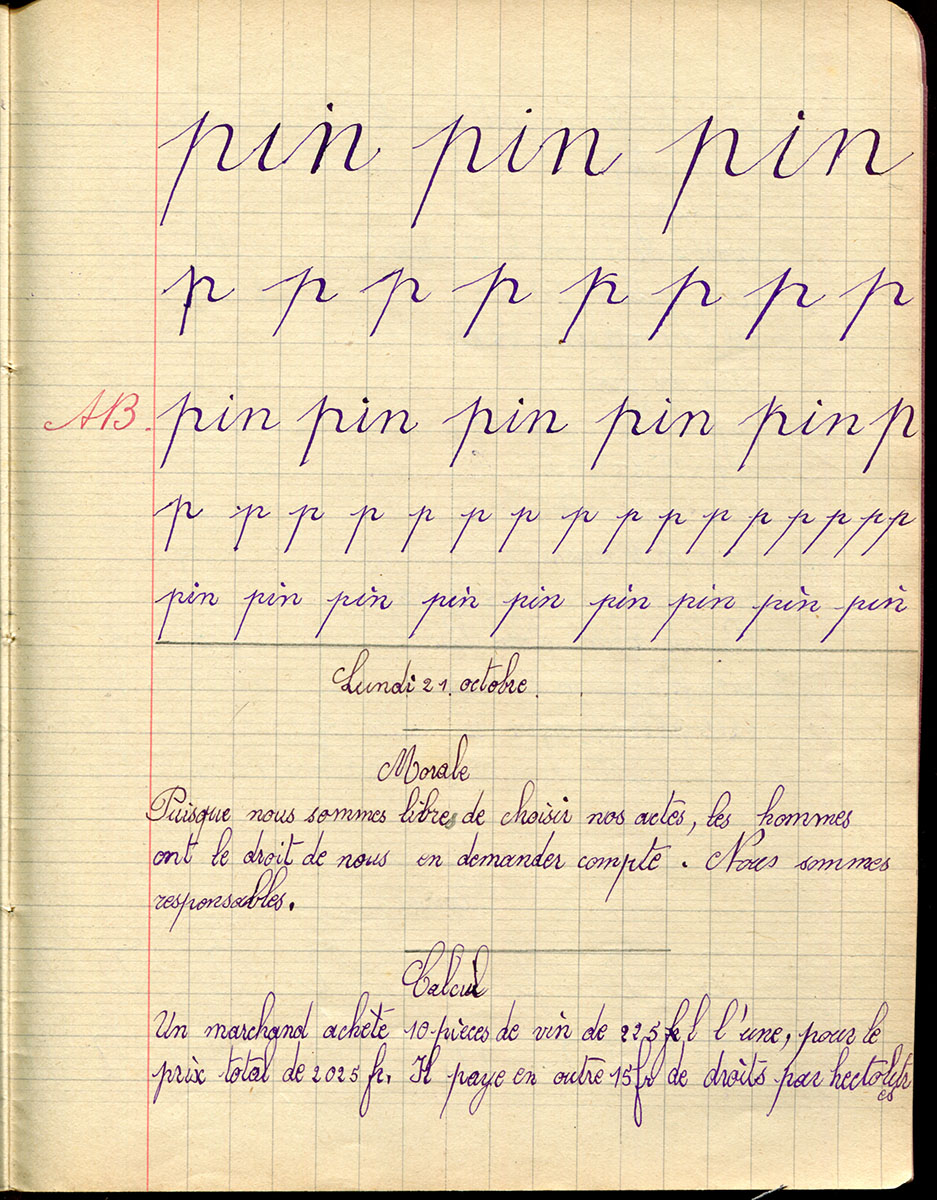 pin pin pin
p p p p p p p p
AB. pin pin pin pin pin p
p p p p p p p p p p p p p p p p
pin pin pin pin pin pin pin pin pin
Lundi 21. octobre.
Morale
Puisque nous sommes libres de choisir nos actes, les hommes
ont le droit de nous en demander compte. Nous sommes
responsables.
Calcul
Un marchand achète 10 pièces de vin de 225 l l'une, pour le
prix total de 2025 fr. Il paye en outre 15 fr de droits par hectolitr
es